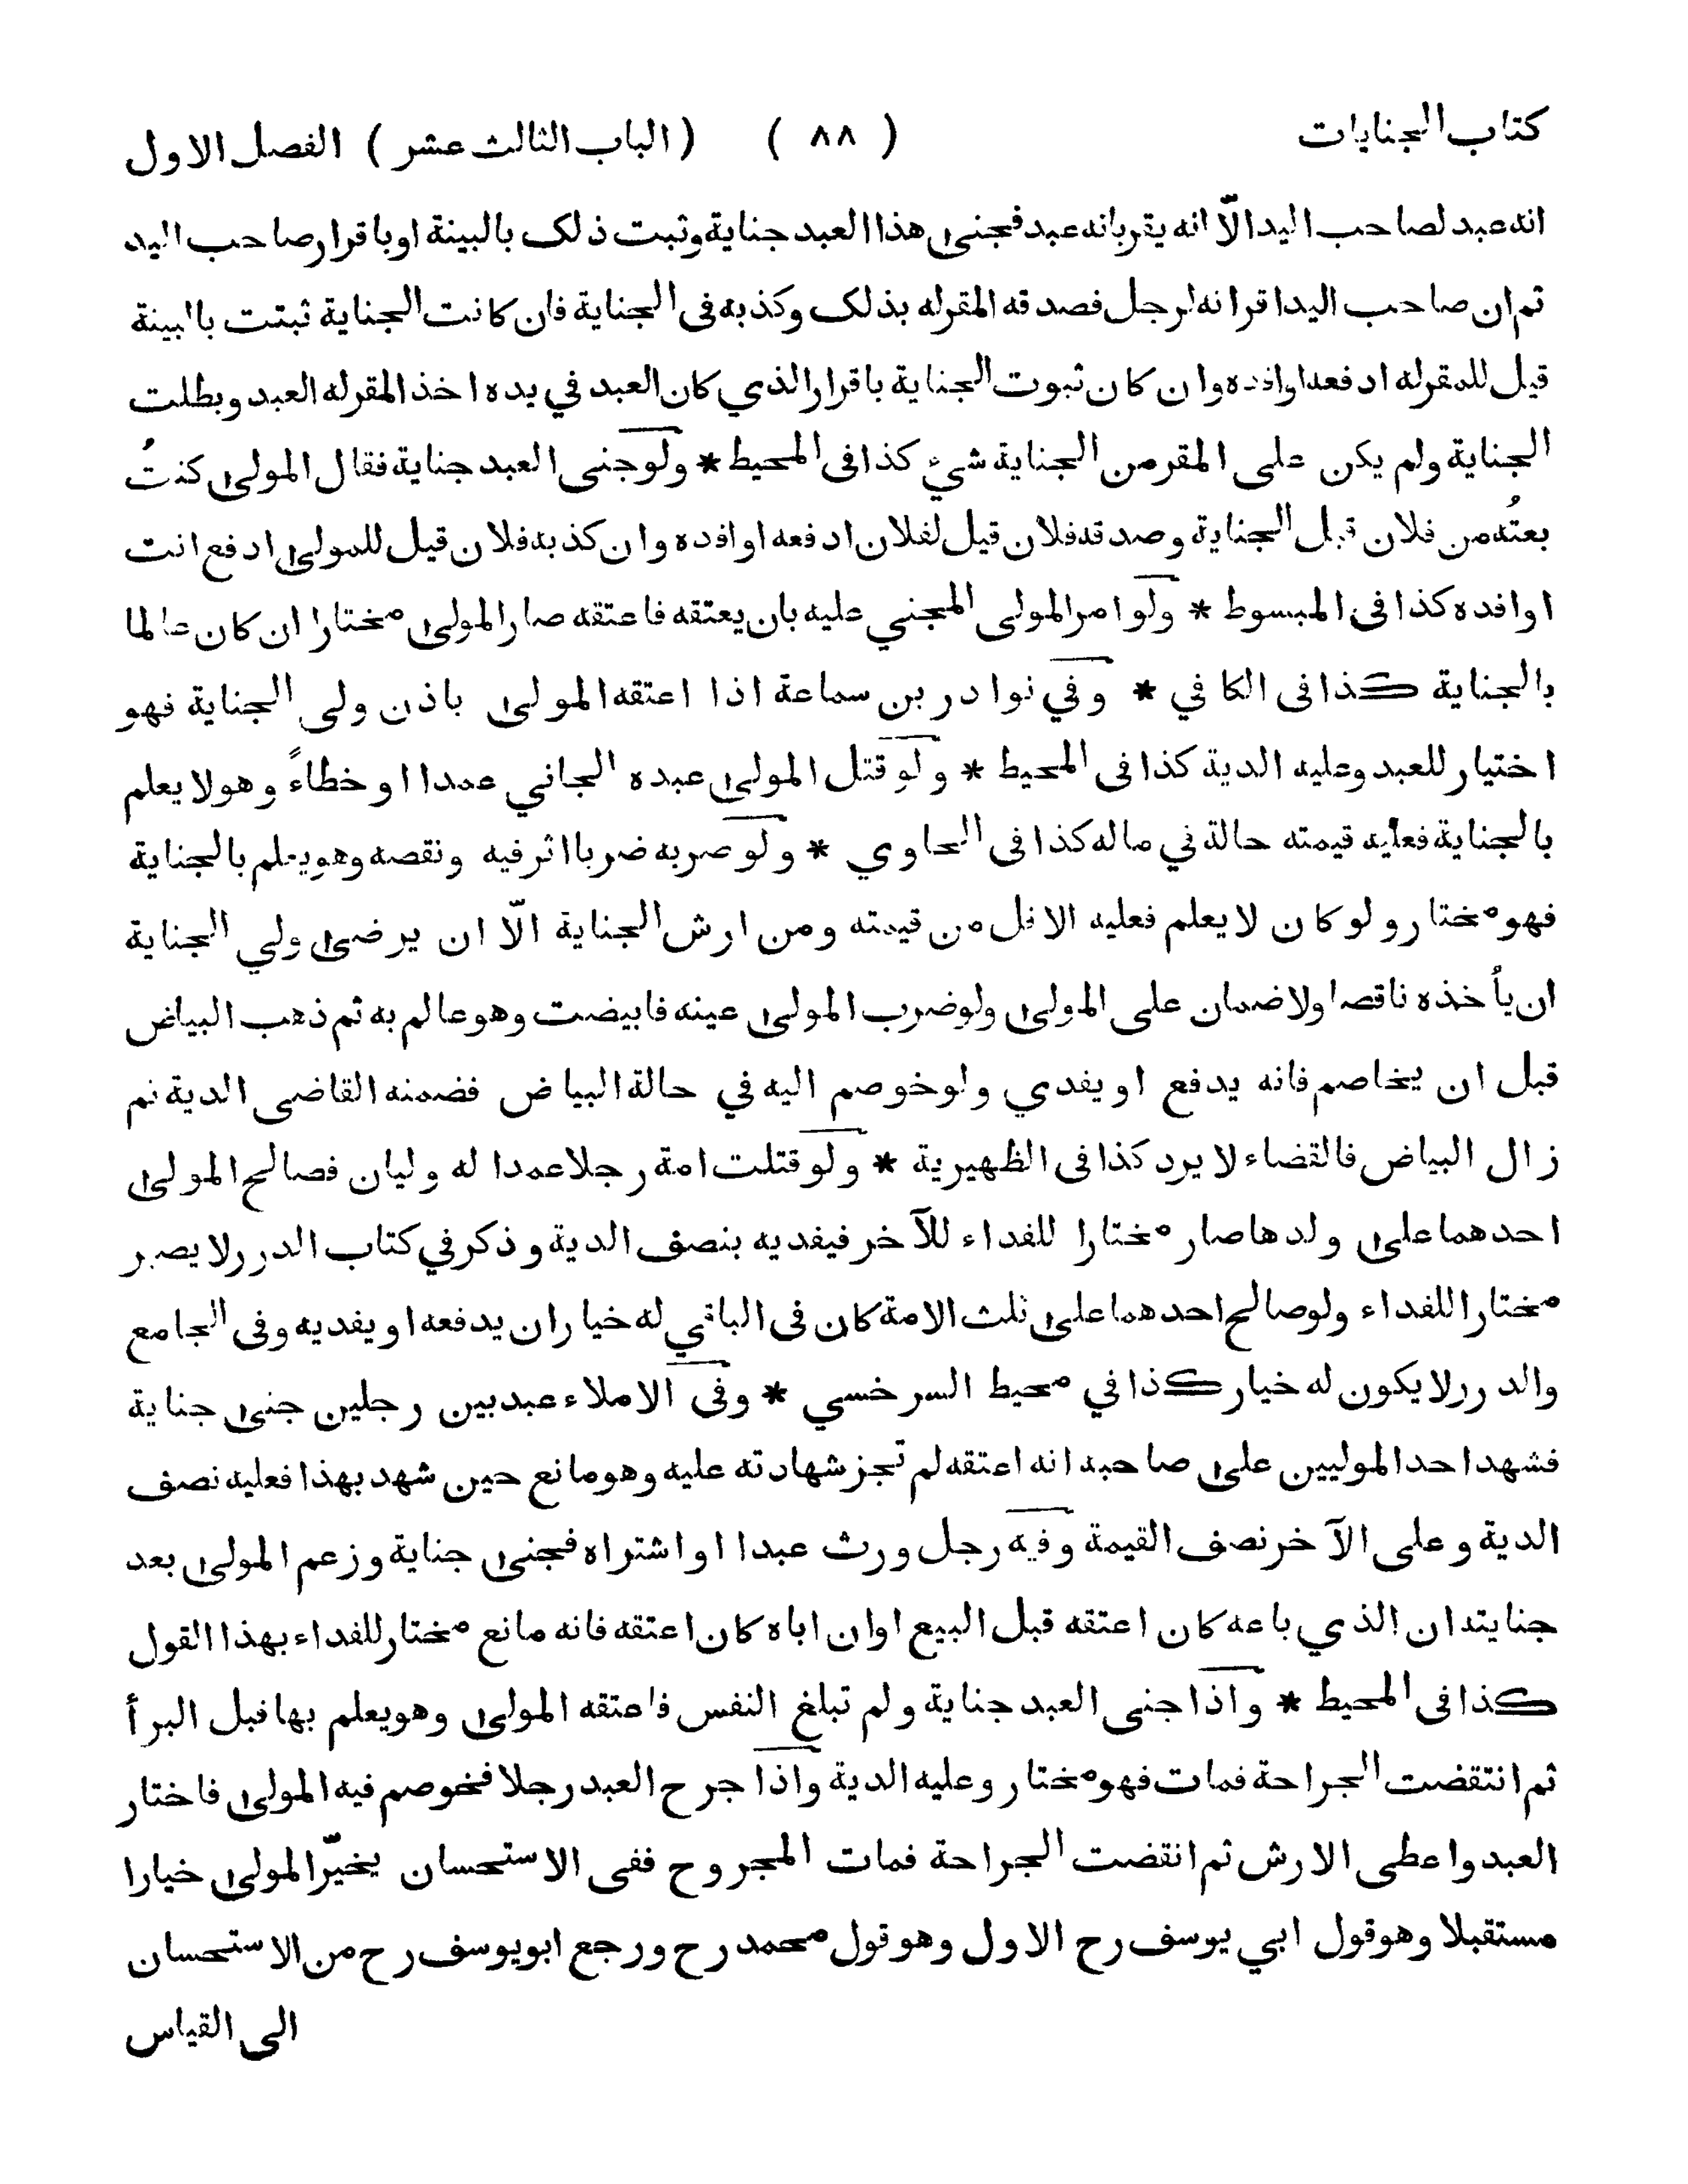 كتاب الجنايات ( ٨٨ ) ( الباب الثالث عشر ) الفصل الاول
انه عبد لصاحب اليد الّا انه يقر بانه عبد فجنى هذا العبد جناية وثبت ذلک بالبينة او باقرار صاحب اليد
ثم ان صاحب اليد اقر انه لرجل فصدقه المقر له بذلک وكذبه فى الجناية فان كانت الجناية ثبتت بالبينة
قيل للمقر له ادفعه او افده وان كان ثبوت الجناية باقرار الذي كان العبد في يده اخذ المقر له العبد وبطلت
الجناية ولم يكن على المقر من الجناية شيء كذا فى المحيط * ولو جنى العبد جناية فقال المولى كنتُ
بعتُه من فلان قبل الجناية وصدقه فلان قيل لفلان ادفعه او افده وان كذبه فلان قيل للمولى ادفع انت
او افده كذا فى المبسوط * ولو امر المولى المجني عليه بان يعتقه فاعتقه صار المولى مختارا ان كان عالما
بالجناية كذا فى الكافي * وفي نوادر بن سماعة اذا اعتقه المولى باذن ولى الجناية فهو
اختيار للعبد وعليه الدية كذا فى المحيط * ولو قتل المولى عبده الجاني عمدا او خطاءً وهو لا يعلم
بالجناية فعليه قيمته حالة في ماله كذا فى الحاوي * ولو ضربه ضربا اثر فيه ونقصه وهو يعلم بالجناية
فهو مختار ولو كان لا يعلم فعليه الاقل من قيمته ومن ارش الجناية الّا ان يرضى ولي الجناية
ان يأخذه ناقصا ولا ضمان على المولى ولو ضرب المولى عينه فابيضت وهو عالم به ثم ذهب البياض
قبل ان يخاصم فانه يدفع او يفدي ولو خوصم اليه في حالة البياض فضمنه القاضى الدية ثم
زال البياض فالقضاء لا يرد كذا فى الظهيرية * ولو قتلت امة رجلا عمدا له وليان فصالح المولى
احدهما على ولدها صار مختارا للفداء للآخر فيفديه بنصف الدية وذكر في كتاب الدرر لا يصير
مختارا للفداء ولو صالح احدهما على ثلث الامة كان فى الباقي له خيار ان يدفعه او يفديه وفى الجامع
والدرر لا يكون له خيار كذا في محيط السرخسي * وفى الاملاء عبد بين رجلين جنى جناية
فشهد احد الموليين على صاحبه انه اعتقه لم تجز شهادته عليه وهو مانع حين شهد بهذا فعليه نصف
الدية وعلى الآخر نصف القيمة وفيه رجل ورث عبدا او اشتراه فجنى جناية وزعم المولى بعد
جنايته ان الذي باعه كان اعتقه قبل البيع او ان اباه كان اعتقه فانه مانع مختار للفداء بهذا القول
كذا فى المحيط * واذا جنى العبد جناية ولم تبلغ النفس فاعتقه المولى وهو يعلم بها قبل البرأ
ثم انتقضت الجراحة فمات فهو مختار وعليه الدية واذا جرح العبد رجلا فخوصم فيه المولى فاختار
العبد واعطى الارش ثم انقضت الجراحة فمات المجروح ففى الاستحسان يخيّر المولى خيارا
مستقبلا وهو قول ابي يوسف رح الاول وهو قول محمد رح ورجع ابو يوسف رح من الاستحسان
الى القياس